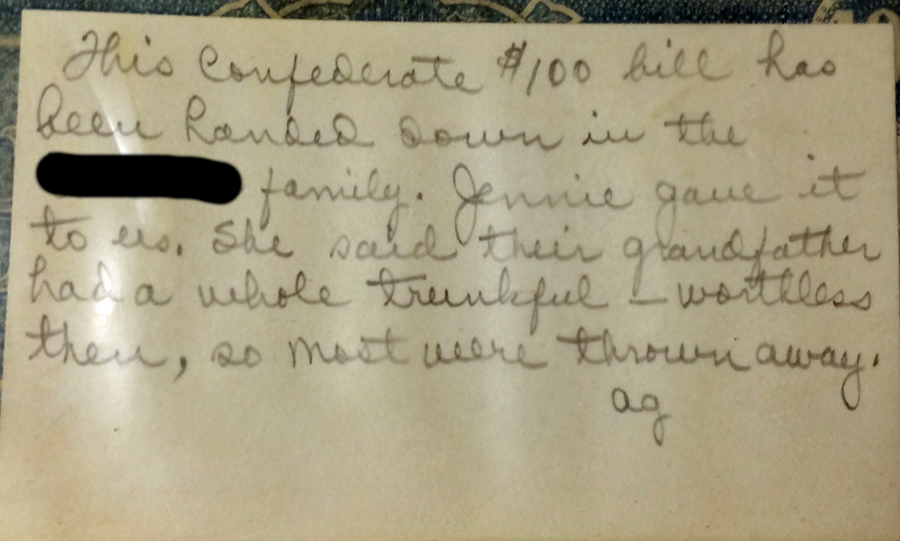 This Confederate $100 bill has
been handed down in the
family. Jennie gave it
to us. She said their grandfather
had a whole trunkful – worthless
then, so most were thrown away.
ag